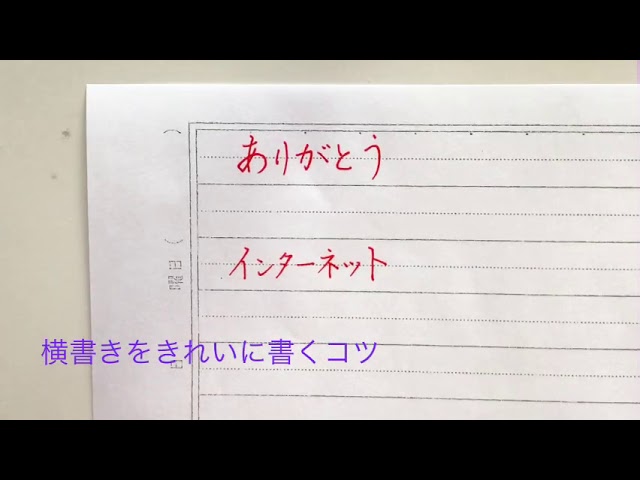 ありがとう
インターネット
横書きをきれいに書くコツ